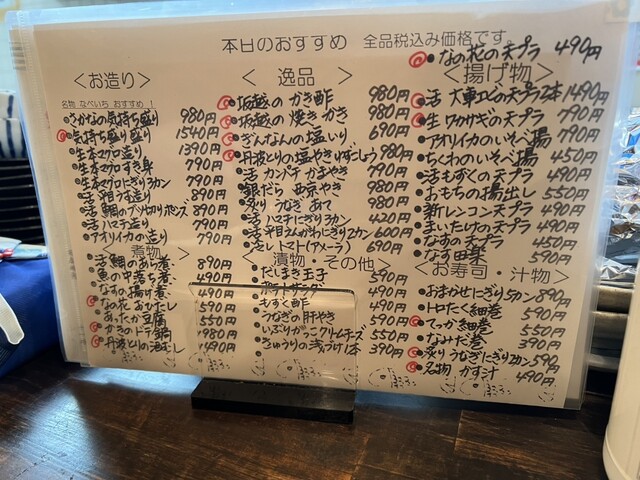 本日のおすすめ 全品税込み価格です。
<お造り>
名物 なべいち おすすめ！
さかなの気持ち盛り 980円
気持ち盛り盛り 1540円
生本マグロ造り 1390円
生本マグロすき身 790円
生本マグロトロにぎり3カン 790円
活平目うす造り 890円
活鯛のブツ切りポンズ 890円
活ハマチ造り 790円
アオリイカの造り 790円
<煮物>
活鯛のあら煮 890円
魚の中落ち煮 490円
なすの揚げ煮 490円
なの花おひたし 590円
あったか豆腐 550円
かきのドテ鍋 980円
丹波とりの酒むし 1490円
<逸品>
坂越のかき酢 980円
坂越の焼きかき 980円
ぎんなんの塩いり 690円
丹波とりの塩やきゆずこしょう 980円
活カンパチカマやき 790円
銀だら西京やき 980円
炙りうなぎあて 980円
活ハマチにぎり3カン 420円
活平目えんがわにぎり2カン 600円
冷しトマト(アメーラ) 690円
<漬物・その他>
だしまき玉子 590円
ポテトサラダ 490円
もずく酢 490円
うなぎの肝やき 590円
いぶりがっこクリームチーズ 550円
きゅうりの浅づけ1本 390円
なの花の天プラ 490円
<揚げ物>
活大車エビの天プラ2本 1490円
生ワカサギの天プラ 790円
アオリイカのいそべ揚 790円
ちくわのいそべ揚 450円
活もずくの天プラ 490円
おもちの揚出し 550円
新レンコン天プラ 490円
まいたけの天プラ 490円
なすの天プラ 450円
なす田楽 590円
<お寿司・汁物>
おまかせにぎり5カン 890円
トロたく細巻 590円
てっか細巻 550円
なみだ巻 390円
炙りうなぎにぎり2カン 590円
名物 かす汁 490円